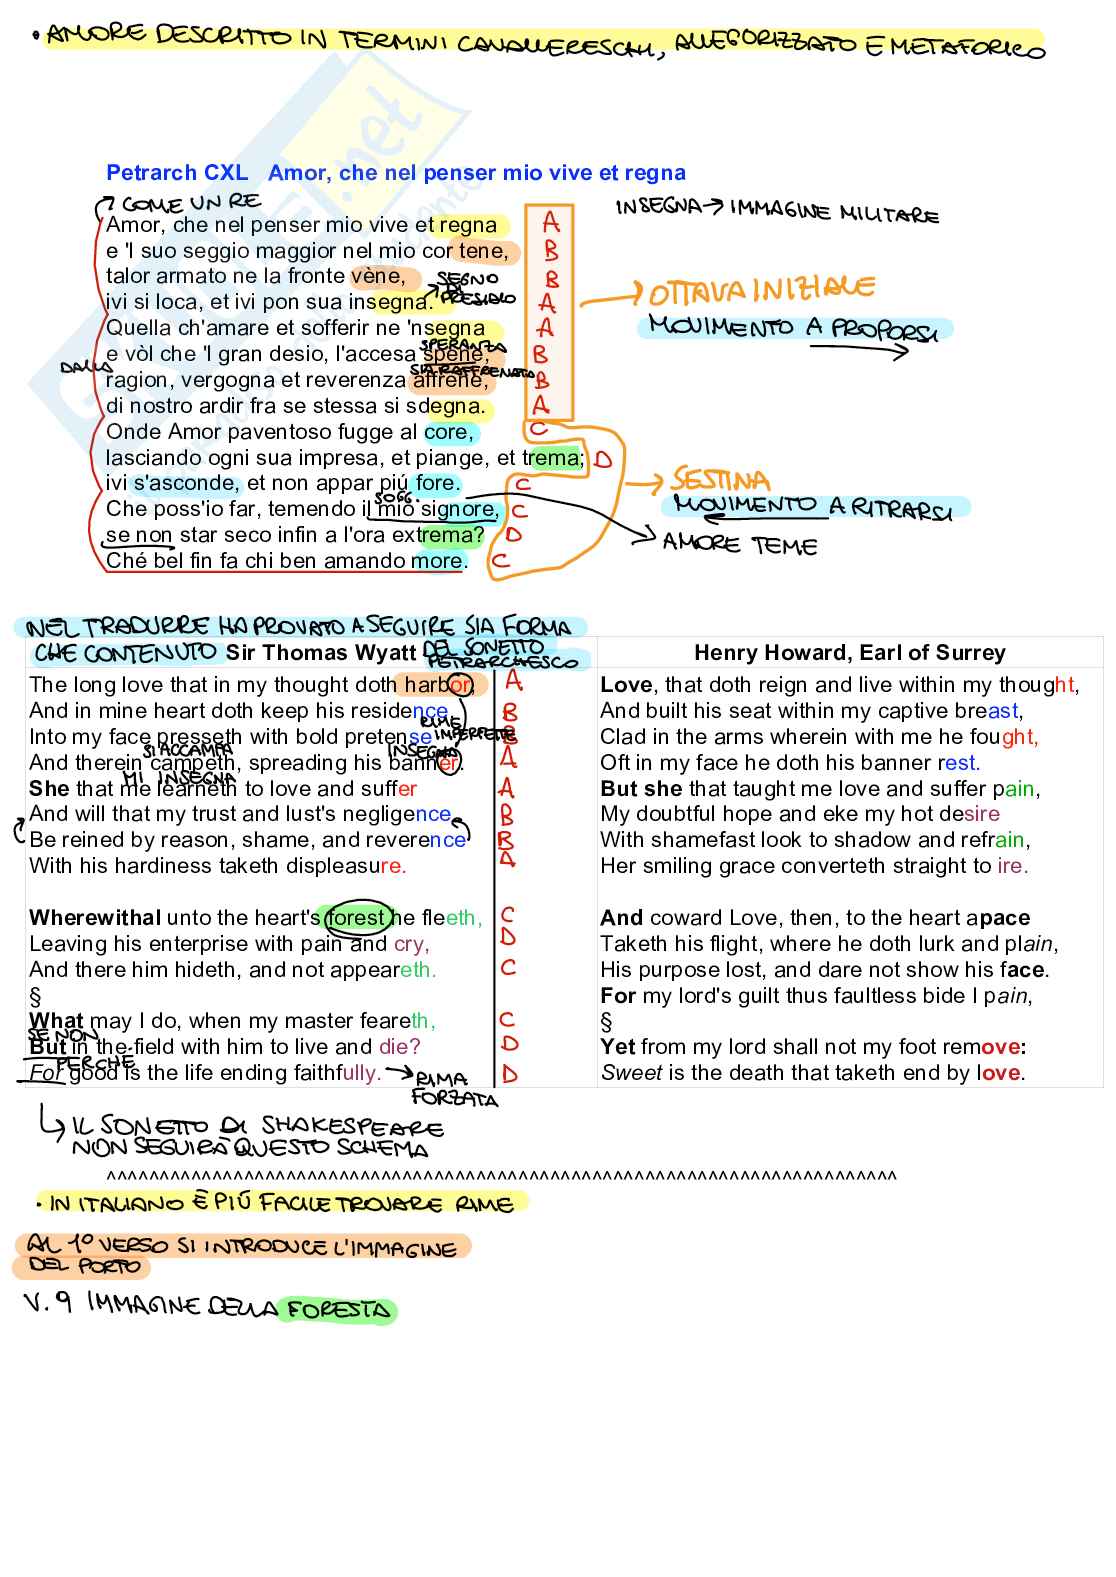 • AMORE DESCRITTO IN TERMINI CAVALLERESCHI, ALLEGORIZZATO E METAFORICO
Petrarch CXL Amor, che nel penser mio vive et regna
COME UN RE
INSEGNA → IMMAGINE MILITARE
Amor, che nel penser mio vive et regna A
e 'l suo seggio maggior nel mio cor tene, B
talor armato ne la fronte vène, B
SEGNO DI PRESIDIO
ivi si loca, et ivi pon sua insegna. A
→ OTTAVA INIZIALE
Quella ch'amare et sofferir ne 'nsegna A
MOVIMENTO A PROPORSI
SPERANZA
e vòl che 'l gran desio, l'accesa spene, B
DALLA
SIA RAFFRENATO
ragion, vergogna et reverenza affrene, B
di nostro ardir fra se stessa si sdegna. A
Onde Amor paventoso fugge al core, C
lasciando ogni sua impresa, et piange, et trema; D
ivi s'asconde, et non appar piú fore. C
→ SESTINA
MOVIMENTO A RITRARSI
SOGG.
Che poss'io far, temendo il mio signore, C
se non star seco infin a l'ora extrema? D
AMORE TEME
Ché bel fin fa chi ben amando more. C
NEL TRADURRE HA PROVATO A SEGUIRE SIA FORMA
CHE CONTENUTO Sir Thomas Wyatt DEL SONETTO
PETRARCHESCO
The long love that in my thought doth harbor, A
And in mine heart doth keep his residence B
RIME IMPERFETTE
Into my face presseth with bold pretense B
SI ACCAMPA
INSEGNA
And therein campeth, spreading his banner. A
MI INSEGNA
She that me learneth to love and suffer A
And will that my trust and lust's negligence B
Be reined by reason, shame, and reverence B
With his hardiness taketh displeasure. A
Wherewithal unto the heart's forest he fleeth, C
Leaving his enterprise with pain and cry, D
And there him hideth, and not appeareth. C
§
What may I do, when my master feareth, C
SE NON
But in the field with him to live and die? D
PERCHÈ
For good is the life ending faithfully. D
→ RIMA
FORZATA
Henry Howard, Earl of Surrey
Love, that doth reign and live within my thought,
And built his seat within my captive breast,
Clad in the arms wherein with me he fought,
Oft in my face he doth his banner rest.
But she that taught me love and suffer pain,
My doubtful hope and eke my hot desire
With shamefast look to shadow and refrain,
Her smiling grace converteth straight to ire.
And coward Love, then, to the heart apace
Taketh his flight, where he doth lurk and plain,
His purpose lost, and dare not show his face.
For my lord's guilt thus faultless bide I pain,
§
Yet from my lord shall not my foot remove:
Sweet is the death that taketh end by love.
IL SONETTO DI SHAKESPEARE
NON SEGUIRÀ QUESTO SCHEMA
^^^^^^^^^^^^^^^^^^^^^^^^^^^^^^^^^^^^^^^^^^^^^^^^^^^^^^^^^^^^^^^^^^^^^^^^^^
• IN ITALIANO È PIÚ FACILE TROVARE RIME
AL 1° VERSO SI INTRODUCE L'IMMAGINE
DEL PORTO
V. 9 IMMAGINE DELLA FORESTA